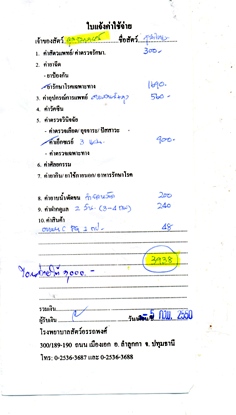 ใบแจ้งค่าใช้จ่าย
เจ้าของสัตว์ ชื่อสัตว์
1. ค่าสัตวแพทย์/ค่าตรวจรักษา. 300.-
2. ค่ายาฉีด
- ยาป้องกัน
- ยารักษาโรคเฉพาะทาง 1690.-
3. ค่าอุปกรณ์การแพทย์ 560.-
4. ค่าวัคซีน
5. ค่าตรวจวินิจฉัย
- ค่าตรวจเลือด/อุจจาระ/ปัสสาวะ
- ค่าเอ็กซเรย์ 900.-
- ค่าตรวจเฉพาะทาง
6. ค่าศัลยกรรม
7. ค่ายากิน/ยาใช้ภายนอก/อาหารรักษาโรค
8. ค่าอาบน้ำตัดขน 200
9. ค่าฝากดูแล 2 วัน (3-4 กพ) 240
10. ค่าสินค้า
48
3938
รวมเงิน
ผู้รับเงิน วันที่ - 5 ก.พ. 2560
โรงพยาบาลสัตว์อรรถพงศ์
300/189-190 ถนน เมืองเอก อ. ลำลูกกา จ. ปทุมธานี
โทร: 0-2536-3687 และ 0-2536-3688